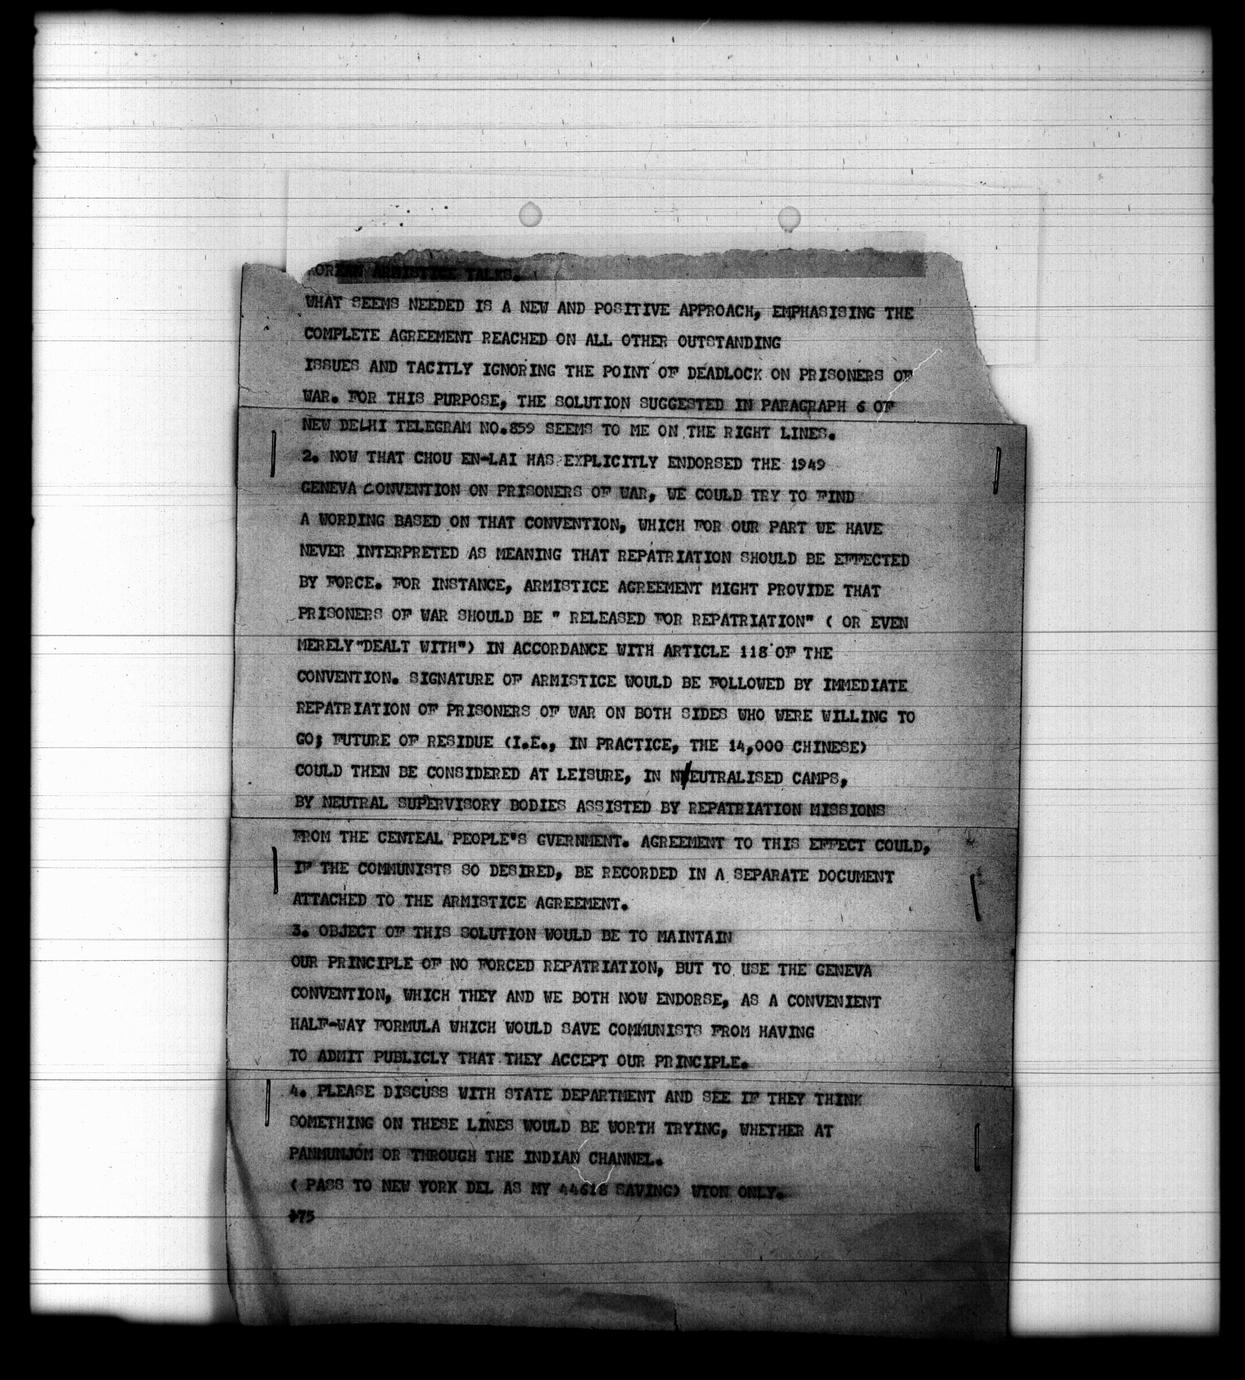 KOREAN ARMISTICE TALKS.
WHAT SEEMS NEEDED IS A NEW AND POSITIVE APPROACH, EMPHASISING THE
COMPLETE AGREEMENT REACHED ON ALL OTHER OUTSTANDING
ISSUES AND TACITLY IGNORING THE POINT OF DEADLOCK ON PRISONERS OF
WAR. FOR THIS PURPOSE, THE SOLUTION SUGGESTED IN PARAGRAPH 6 OF
NEW DELHI TELEGRAM NO.859 SEEMS TO ME ON THE RIGHT LINES.
2. NOW THAT CHOU EN-LAI HAS EXPLICITLY ENDORSED THE 1949
GENEVA CONVENTION ON PRISONERS OF WAR, WE COULD TRY TO FIND
A WORDING BASED ON THAT CONVENTION, WHICH FOR OUR PART WE HAVE
NEVER INTERPRETED AS MEANING THAT REPATRIATION SHOULD BE EFFECTED
BY FORCE. FOR INSTANCE, ARMISTICE AGREEMENT MIGHT PROVIDE THAT
PRISONERS OF WAR SHOULD BE " RELEASED FOR REPATRIATION" ( OR EVEN
MERELY"DEALT WITH") IN ACCORDANCE WITH ARTICLE 118 OF THE
CONVENTION. SIGNATURE OF ARMISTICE WOULD BE FOLLOWED BY IMMEDIATE
REPATRIATION OF PRISONERS OF WAR ON BOTH SIDES WHO WERE WILLING TO
GO; FUTURE OF RESIDUE (I.E., IN PRACTICE, THE 14,000 CHINESE)
COULD THEN BE CONSIDERED AT LEISURE, IN NEUTRALISED CAMPS,
BY NEUTRAL SUPERVISORY BODIES ASSISTED BY REPATRIATION MISSIONS
FROM THE CENTEAL PEOPLE'S GVERNMENT. AGREEMENT TO THIS EFFECT COULD,
IF THE COMMUNISTS SO DESIRED, BE RECORDED IN A SEPARATE DOCUMENT
ATTACHED TO THE ARMISTICE AGREEMENT.
3. OBJECT OF THIS SOLUTION WOULD BE TO MAINTAIN
OUR PRINCIPLE OF NO FORCED REPATRIATION, BUT TO USE THE GENEVA
CONVENTION, WHICH THEY AND WE BOTH NOW ENDORSE, AS A CONVENIENT
HALF-WAY FORMULA WHICH WOULD SAVE COMMUNISTS FROM HAVING
TO ADMIT PUBLICLY THAT THEY ACCEPT OUR PRINCIPLE.
4. PLEASE DISCUSS WITH STATE DEPARTMENT AND SEE IF THEY THINK
SOMETHING ON THESE LINES WOULD BE WORTH TRYING, WHETHER AT
PANMUNJOM OR THROUGH THE INDIAN CHANNEL.
( PASS TO NEW YORK DEL AS MY 44618 SAVING) WTON ONLY.
+75